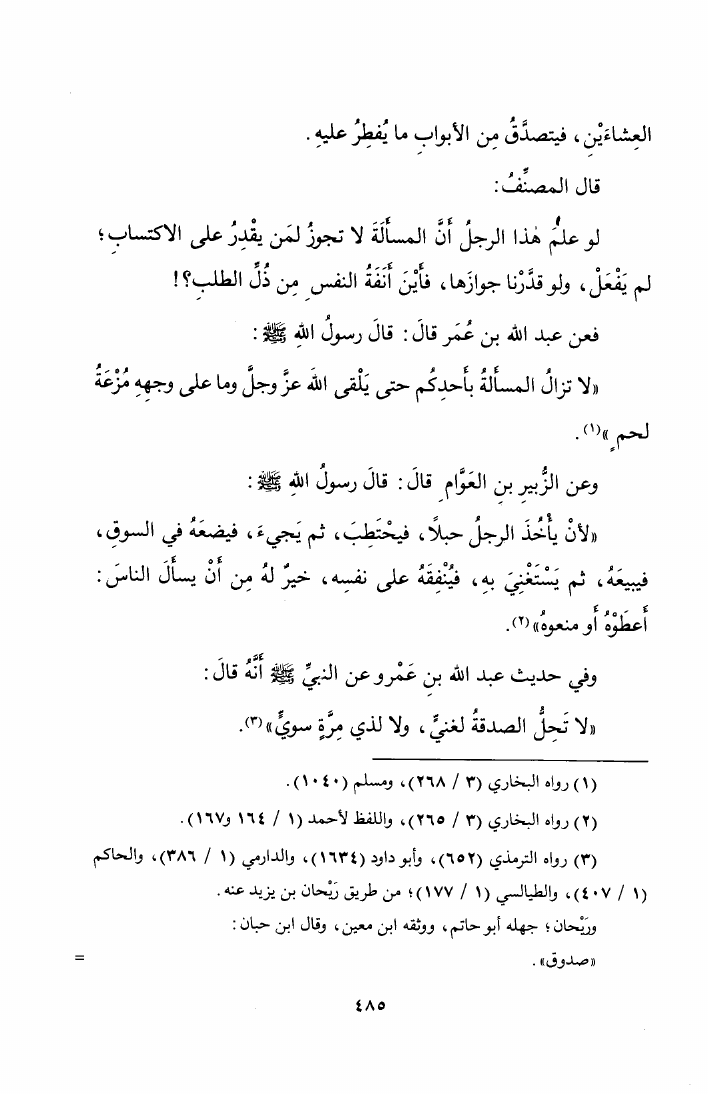 العِشاءَيْنِ، فيتصدَّقُ مِن الأبوابِ ما يُفطِرُ عليهِ.
قال المصنِّفُ:
لو علمَ هٰذا الرجلُ أَنَّ المسأَلَةَ لا تجوزُ لمَن يقْدِرُ على الاكتسابِ؛
لم يَفْعَلْ، ولو قدَّرْنا جوازَها، فأَيْنَ أَنَفَةُ النفسِ مِن ذُلِّ الطلبِ؟!
فعن عبد الله بن عُمَر قالَ: قالَ رسولُ اللهِ ﷺ:
«لا تزالُ المسأَلةُ بأَحدِكُم حتى يَلْقى اللهَ عزَّ وجلَّ وما على وجههِ مُزْعَةُ
لحمٍ»(١).
وعن الزُّبيرِ بن العَوَّامِ قالَ: قالَ رسولُ اللهِ ﷺ:
«لأنْ يأْخُذَ الرجلُ حبلًا، فيحْتَطِبَ، ثم يَجيءَ، فيضعَهُ في السوقِ،
فيبيعَهُ، ثم يَسْتَغْنِيَ بهِ، فيُنْفِقَهُ على نفسِه، خيرٌ لهُ مِن أَنْ يسأَلَ الناسَ:
أَعطَوْهُ أَو منعوهُ»(٢).
وفي حديث عبد الله بن عَمْرو عن النبيِّ ﷺ أَنَّهُ قالَ:
«لا تَحِلُّ الصدقةُ لغنيٍّ، ولا لذي مِرَّةٍ سويٍّ»(٣).
(١) رواه البخاري (٣ / ٢٦٨)، ومسلم (١٠٤٠).
(٢) رواه البخاري (٣ / ٢٦٥)، واللفظ لأحمد (١ / ١٦٤ و١٦٧).
(٣) رواه الترمذي (٦٥٢)، وأبو داود (١٦٣٤)، والدارمي (١ / ٣٨٦)، والحاكم
(١ / ٤٠٧)، والطيالسي (١ / ١٧٧)؛ من طريق رَيْحان بن يزيد عنه.
ورَيْحان؛ جهله أبو حاتم، ووثقه ابن معين، وقال ابن حبان:
«صدوق». =
٤٨٥